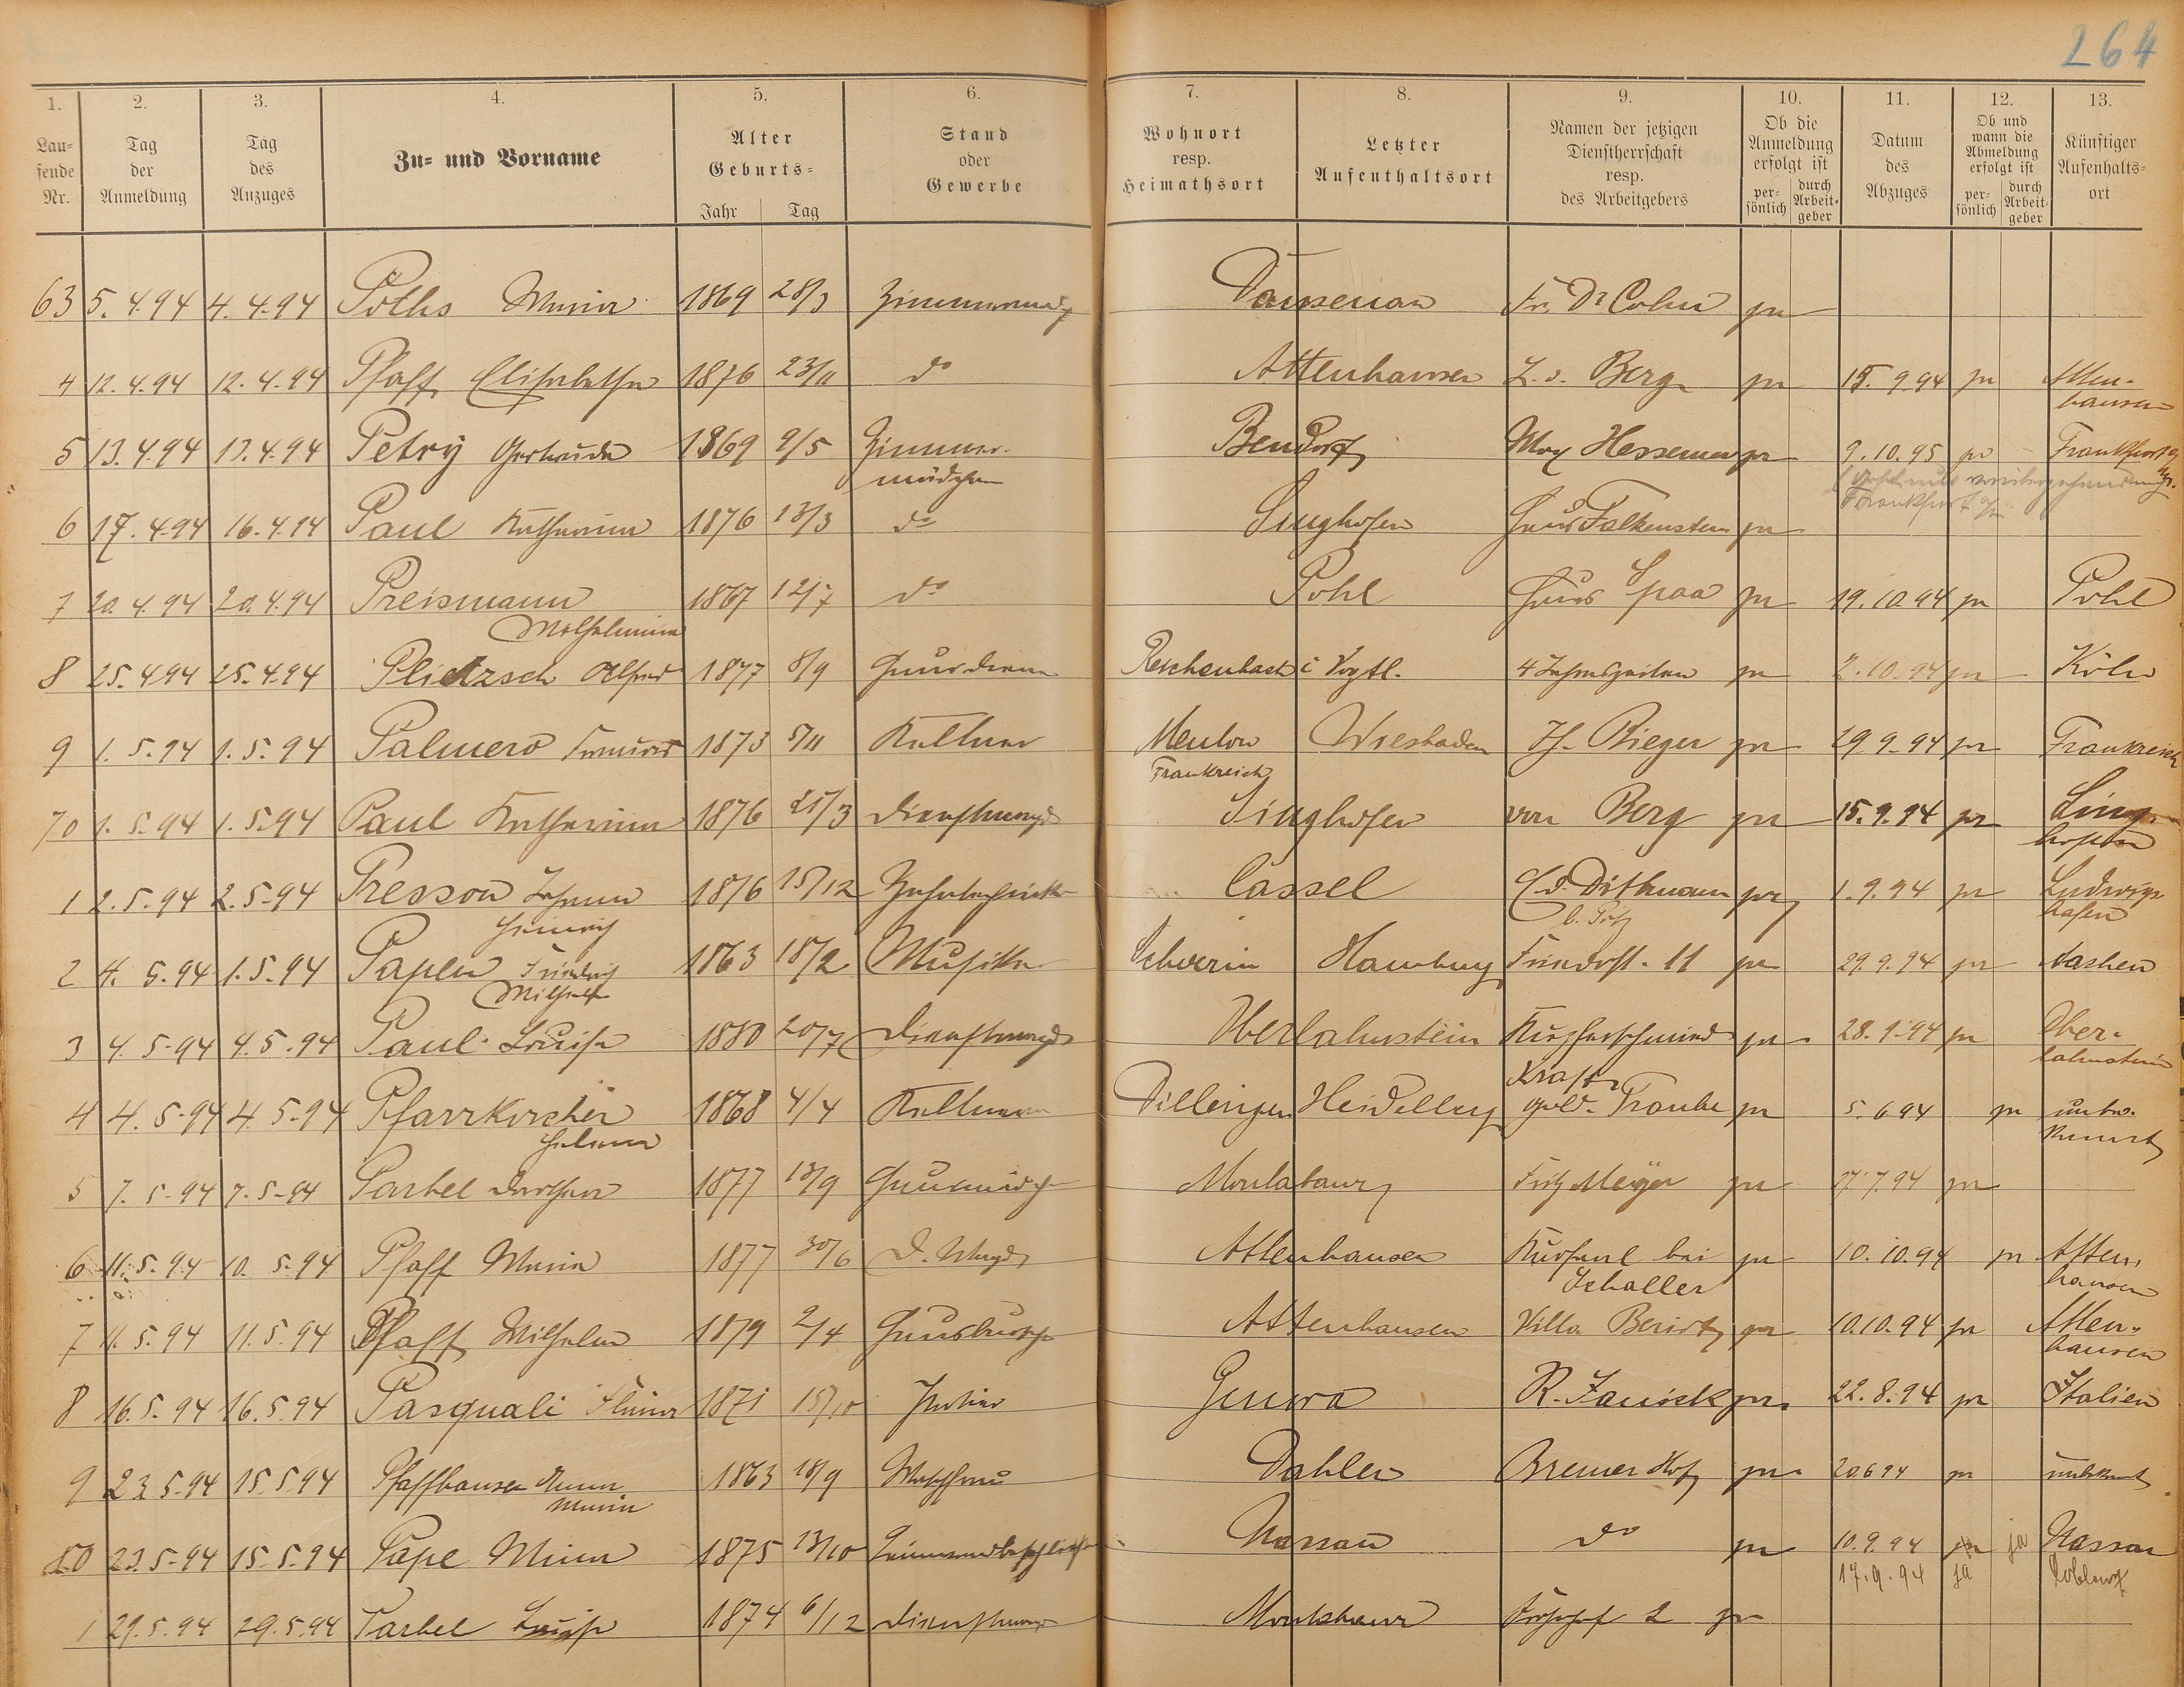 264
1. 2. 3. 4. 5. 6. 7. 8. 9. 10. 11. 12. 13.
Laufende Nr. Tag der Anmeldung Tag des Anzuges Zu- und Vorname Alter Geburts- Jahr Tag Stand oder Gewerbe Wohnort resp. Heimathsort Letzter Aufenthaltsort Namen der jetzigen Dienstherrschaft resp. des Arbeitgebers Ob die Anmeldung erfolgt ist persönlich durch Arbeitgeber Datum des Abzuges Ob und wann die Abmeldung erfolgt ist persönlich durch Arbeitgeber Künftiger Aufenthaltsort
63 5.4.94 4.4.94 Poths Maria 1869 28/3 Dausenau Fr. Dr Cohn
4 12.4.94 12.4.94 Pfaff Elisabetha 1876 23/11 do Attenhausen Z. v. Berg 15.9.94 Atten-
hausen
5 13.4.94 13.4.94 Petry Gertrude 1869 9/5 Zimmer- Bendorf Max Hessemer 9.10.95 Frankfurt
mädchen
Frankfurt
6 17.4.94 16.4.94 Paul Katharina 1876 13/3 do Singhofen Haus Falkenstein
7 20.4.94 20.4.94 Preismann 1867 12/7 do Pohl Haus Spaa 19.10.94 Pohl
Wilhelmine
8 25.4.94 25.4.94 Plietzsch Alfred 1877 8/9 Hausdiener Reichenbach i Vogtl. 4 Jahreszeiten 2.10.94 Köln
9 1.5.94 1.5.94 Palmero 1873 5/11 Kellner Menton Wiesbaden Jf. Rieger 29.9.94 Frankreich
Frankreich
70 1.5.94 1.5.94 Paul Katharina 1876 25/3 Dienstmagd Singhofen von Berg 15.9.94 Sing-
hofen
1 2.5.94 2.5.94 Presson Johann 1876 15/12 Cassel Dithmann 1.9.94 Ludwigs
Heinrich hafen
2 4.5.94 1.5.94 Papen Friedrich 1863 18/2 Musiker Schwerin Hamburg 11 29.9.94 Aachen
Wilhelm
3 4.5.94 4.5.94 Paul Louise 1880 20/7 Dienstmagd Oberlahnstein Kupferschmied 28.9.94 Ober-
Kraft lahnstein
4 4.5.94 4.5.94 Pfarrkircher 1868 4/4 Kellnerin Dillingen Heidelberg gold. Traube 5.6.94 unbe-
Helena kannt
5 7.5.94 7.5.94 Parbel 1877 13/9 Montabaur Fritz Meyer 17.7.94
6 11.5.94 10.5.94 Pfaff Maria 1877 30/6 D. Magd Attenhausen Kursaal bei 10.10.94 Atten-
Schaller hausen
7 11.5.94 11.5.94 Pfaff Wilhelm 1879 2/4 Hausbursche Attenhausen Villa 10.10.94 Atten-
hausen
8 16.5.94 16.5.94 Pasquali 1871 15/10 Genova 22.8.94 Italien
9 23.5.94 15.5.94 Pfaffhausen Anna 1863 18/9 Waschfrau Dahlen Bremer Hof 20.6.94 unbekannt
Maria
80 23.5.94 15.5.94 Pape Minna 1875 13/10 Nassau do 10.9.94 ja Nassau
17.9.94 ja
1 29.5.94 29.5.94 Parbel Luise 1874 6/12 Dienstmagd Montabaur 2